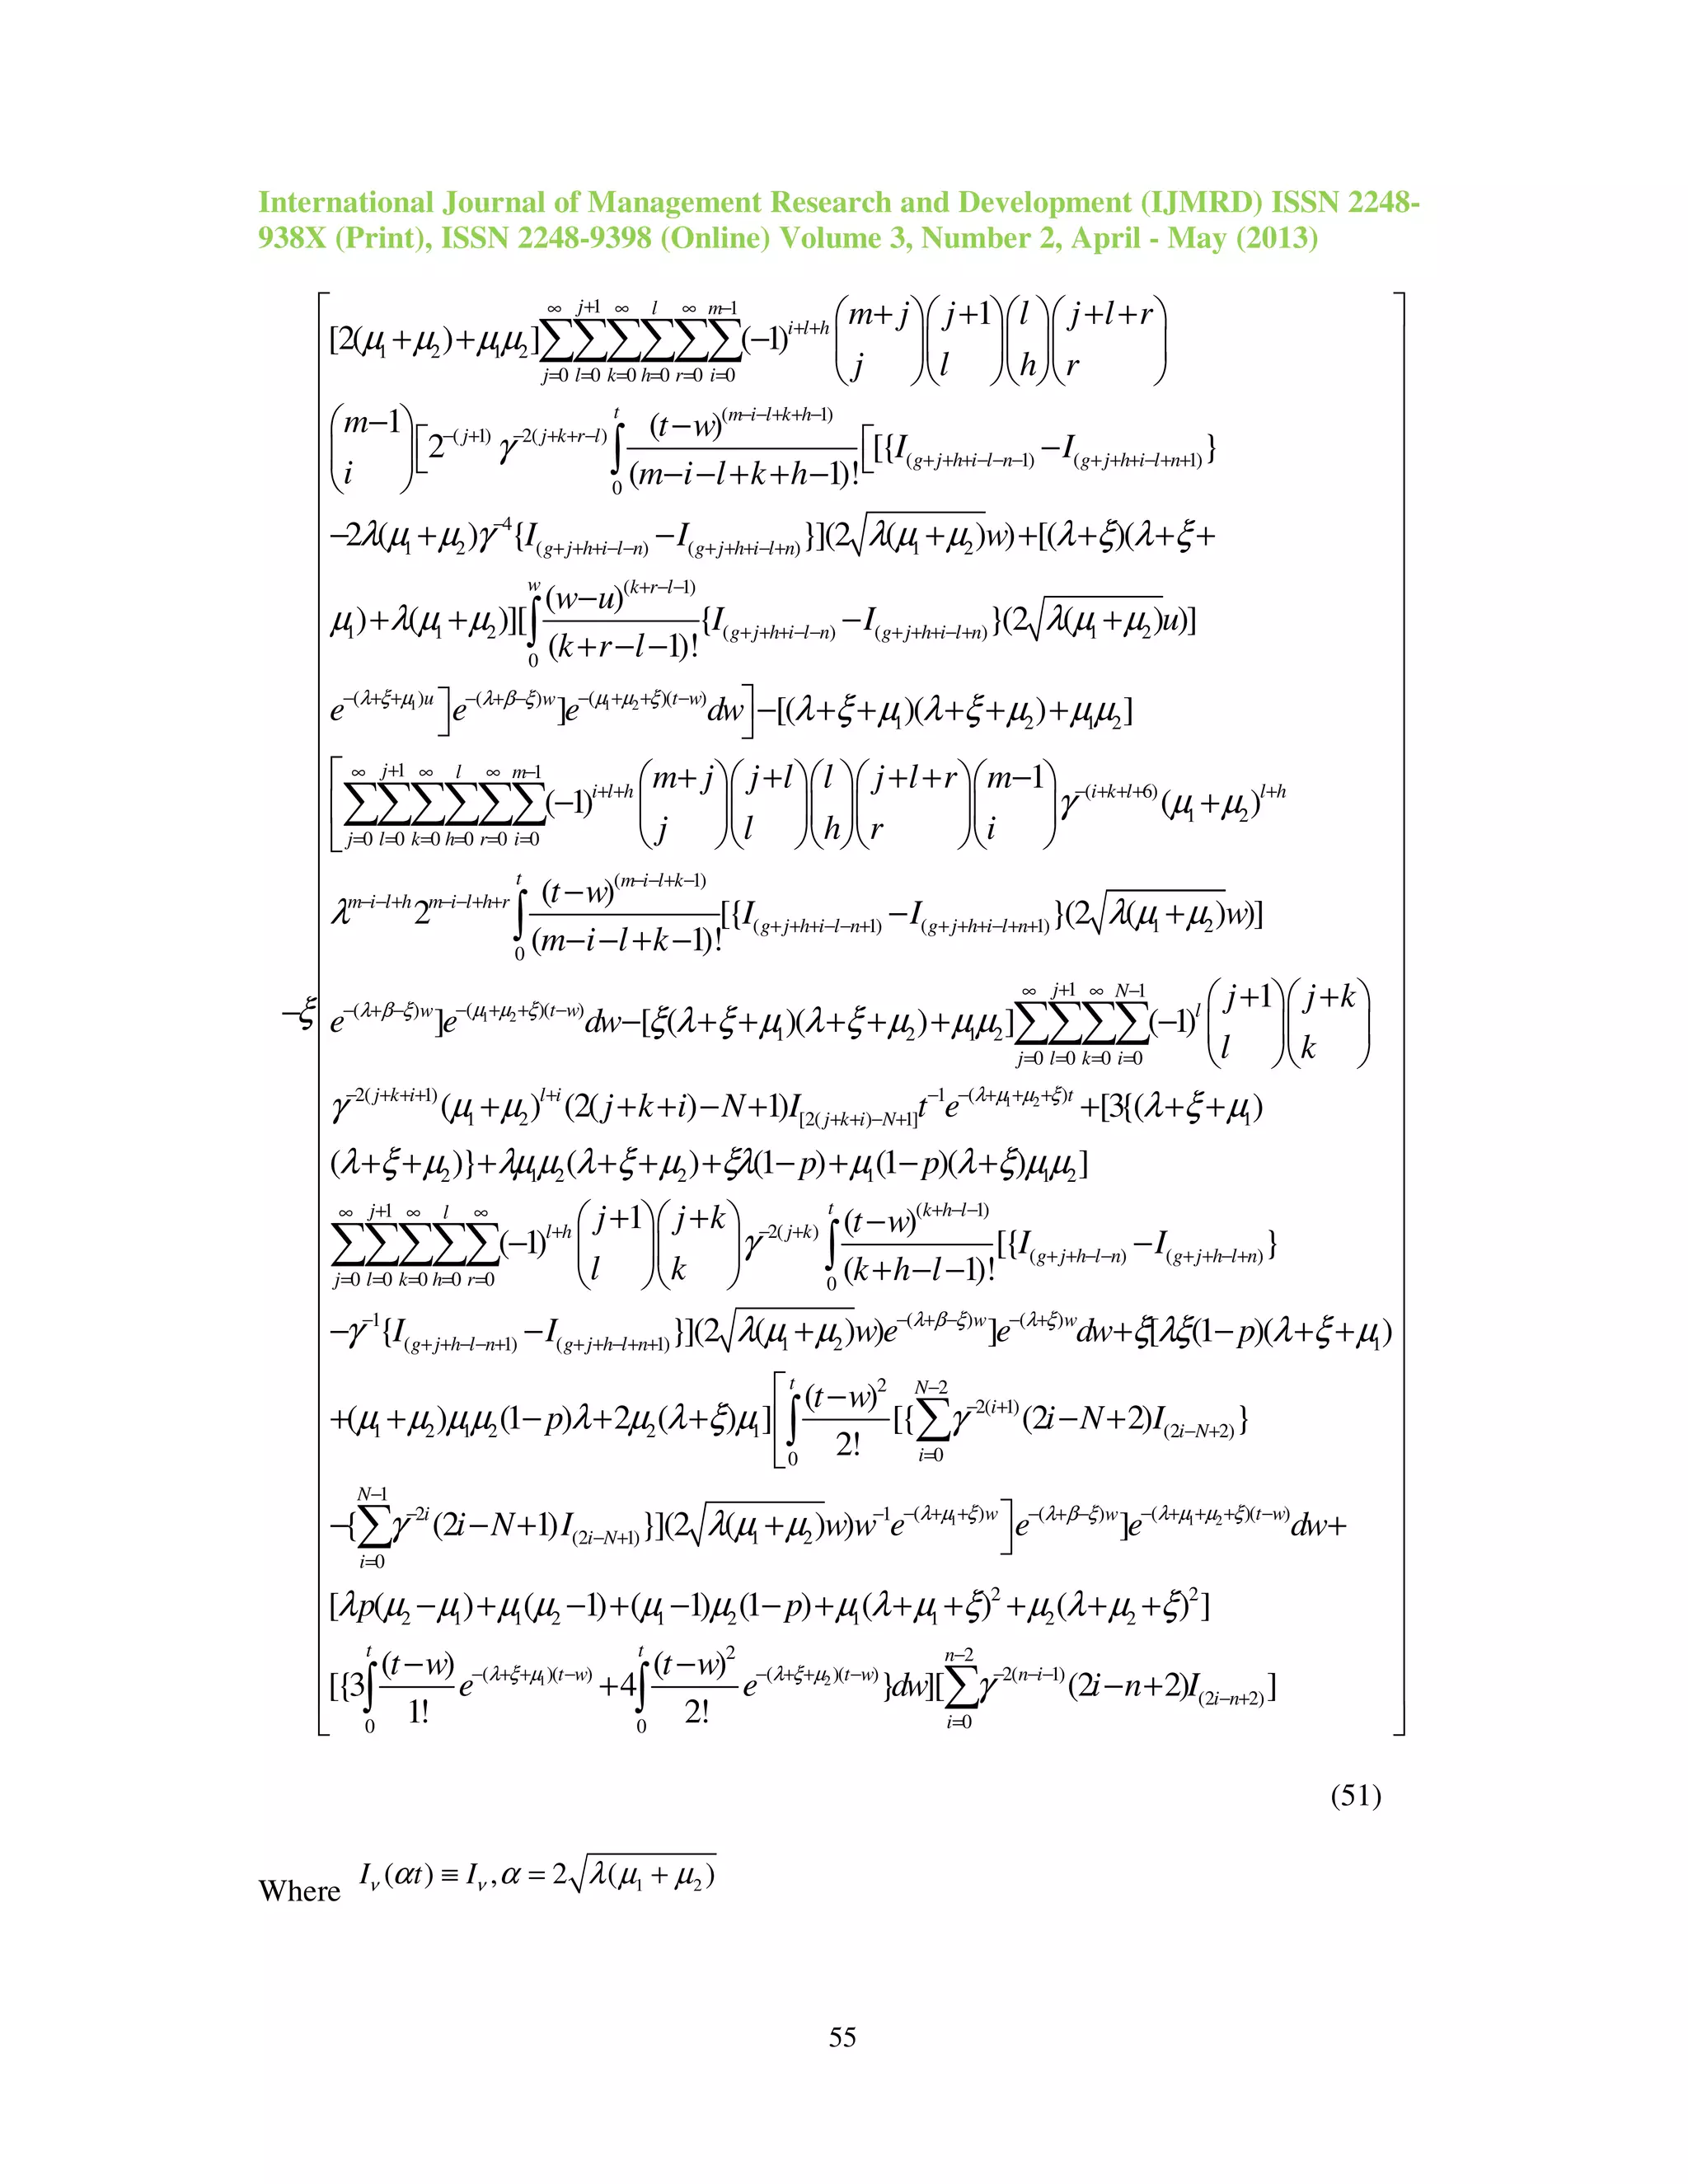 International Journal of Management Research and Development (IJMRD) ISSN 2248-
938X (Print), ISSN 2248-9398 (Online) Volume 3, Number 2, April - May (2013)
[2(μ₁ + μ₂) + μ₁μ₂] ∑_{j=0}^{∞} ∑_{l=0}^{j+1} ∑_{k=0}^{∞} ∑_{h=0}^{l} ∑_{r=0}^{∞} ∑_{i=0}^{m−1} (−1)^{i+l+h} (m+j j) (j+1 l) (l h) (j+l+r r)
(m−1 i) [2^{−(j+1)} γ^{−2(j+k+r−l)} ∫_0^t (t−w)^{(m−i−l+k+h−1)} / (m−i−l+k+h−1)! [[{I_{(g+j+h+i−l−n−1)} − I_{(g+j+h+i−l+n+1)}}
−2λ(μ₁ + μ₂)γ^{−4}{I_{(g+j+h+i−l−n)} − I_{(g+j+h+i−l+n)}}](2√λ(μ₁ + μ₂)w) + [(λ + ξ)(λ + ξ +
μ₁) + λ(μ₁ + μ₂)][∫_0^w (w−u)^{(k+r−l−1)} / (k+r−l−1)! {I_{(g+j+h+i−l−n)} − I_{(g+j+h+i−l+n)}}(2√λ(μ₁ + μ₂)u)]
e^{−(λ+ξ+μ₁)u}] e^{−(λ+β−ξ)w}]e^{−(μ₁+μ₂+ξ)(t−w)} dw] −[(λ + ξ + μ₁)(λ + ξ + μ₂) + μ₁μ₂]
[∑_{j=0}^{∞} ∑_{l=0}^{j+1} ∑_{k=0}^{∞} ∑_{h=0}^{l} ∑_{r=0}^{∞} ∑_{i=0}^{m−1} (−1)^{i+l+h} (m+j j) (j+l l) (l h) (j+l+r r) (m−1 i) γ^{−(i+k+l+6)} (μ₁ + μ₂)^{l+h}
λ^{m−i−l+h} 2^{m−i−l+h+r} ∫_0^t (t−w)^{(m−i−l+k−1)} / (m−i−l+k−1)! [{I_{(g+j+h+i−l−n+1)} − I_{(g+j+h+i−l+n+1)}}(2√λ(μ₁ + μ₂)w)]
−ξ e^{−(λ+β−ξ)w}]e^{−(μ₁+μ₂+ξ)(t−w)} dw −[ξ(λ + ξ + μ₁)(λ + ξ + μ₂) + μ₁μ₂] ∑_{j=0}^{∞} ∑_{l=0}^{j+1} ∑_{k=0}^{∞} ∑_{i=0}^{N−1} (−1)^l (j+1 l) (j+k k)
γ^{−2(j+k+i+1)} (μ₁ + μ₂)^{l+i} (2(j + k + i) − N + 1)I_{[2(j+k+i)−N+1]} t^{−1} e^{−(λ+μ₁+μ₂+ξ)t} +[3{(λ + ξ + μ₁)
(λ + ξ + μ₂)} + λμ₁μ₂(λ + ξ + μ₂) + ξλ(1 − p) + μ₁(1 − p)(λ + ξ)μ₁μ₂]
∑_{j=0}^{∞} ∑_{l=0}^{j+1} ∑_{k=0}^{∞} ∑_{h=0}^{l} ∑_{r=0}^{∞} (−1)^{l+h} (j+1 l) (j+k k) γ^{−2(j+k)} ∫_0^t (t−w)^{(k+h−l−1)} / (k+h−l−1)! [{I_{(g+j+h−l−n)} − I_{(g+j+h−l+n)}}
−γ^{−1}{I_{(g+j+h−l−n+1)} − I_{(g+j+h−l+n+1)}}](2√λ(μ₁ + μ₂)w)e^{−(λ+β−ξ)w}]e^{−(λ+ξ)w} dw + ξ[λξ(1 − p)(λ + ξ + μ₁)
+(μ₁ + μ₂)μ₁μ₂(1 − p)λ + 2μ₂(λ + ξ)μ₁] [∫_0^t (t−w)² / 2! [{∑_{i=0}^{N−2} γ^{−2(i+1)} (2i − N + 2)I_{(2i−N+2)}}
−{∑_{i=0}^{N−1} γ^{−2i} (2i − N + 1)I_{(2i−N+1)}}](2√λ(μ₁ + μ₂)w)w^{−1} e^{−(λ+μ₁+ξ)w}] e^{−(λ+β−ξ)w}]e^{−(λ+μ₁+μ₂+ξ)(t−w)} dw +
[λp(μ₂ − μ₁) + μ₁(μ₂ − 1) + (μ₁ − 1)μ₂(1 − p) + μ₁(λ + μ₁ + ξ)² + μ₂(λ + μ₂ + ξ)²]
[{3∫_0^t (t−w) / 1! e^{−(λ+ξ+μ₁)(t−w)} + 4∫_0^t (t−w)² / 2! e^{−(λ+ξ+μ₂)(t−w)}}dw][∑_{i=0}^{n−2} γ^{−2(n−i−1)} (2i − n + 2)I_{(2i−n+2)}]
(51)
Where I_ν(αt) ≡ I_ν, α = 2√λ(μ₁ + μ₂)
55